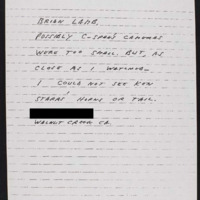 BRIAN LAMB,
POSSIBLY C-SPAN'S CAMERAS
WERE TOO SMALL. BUT, AS
CLOSE AS I WATCHED—
I COULD NOT SEE KEN
STARRS' HORNS OR TAIL.
WALNUT CREEK CA.